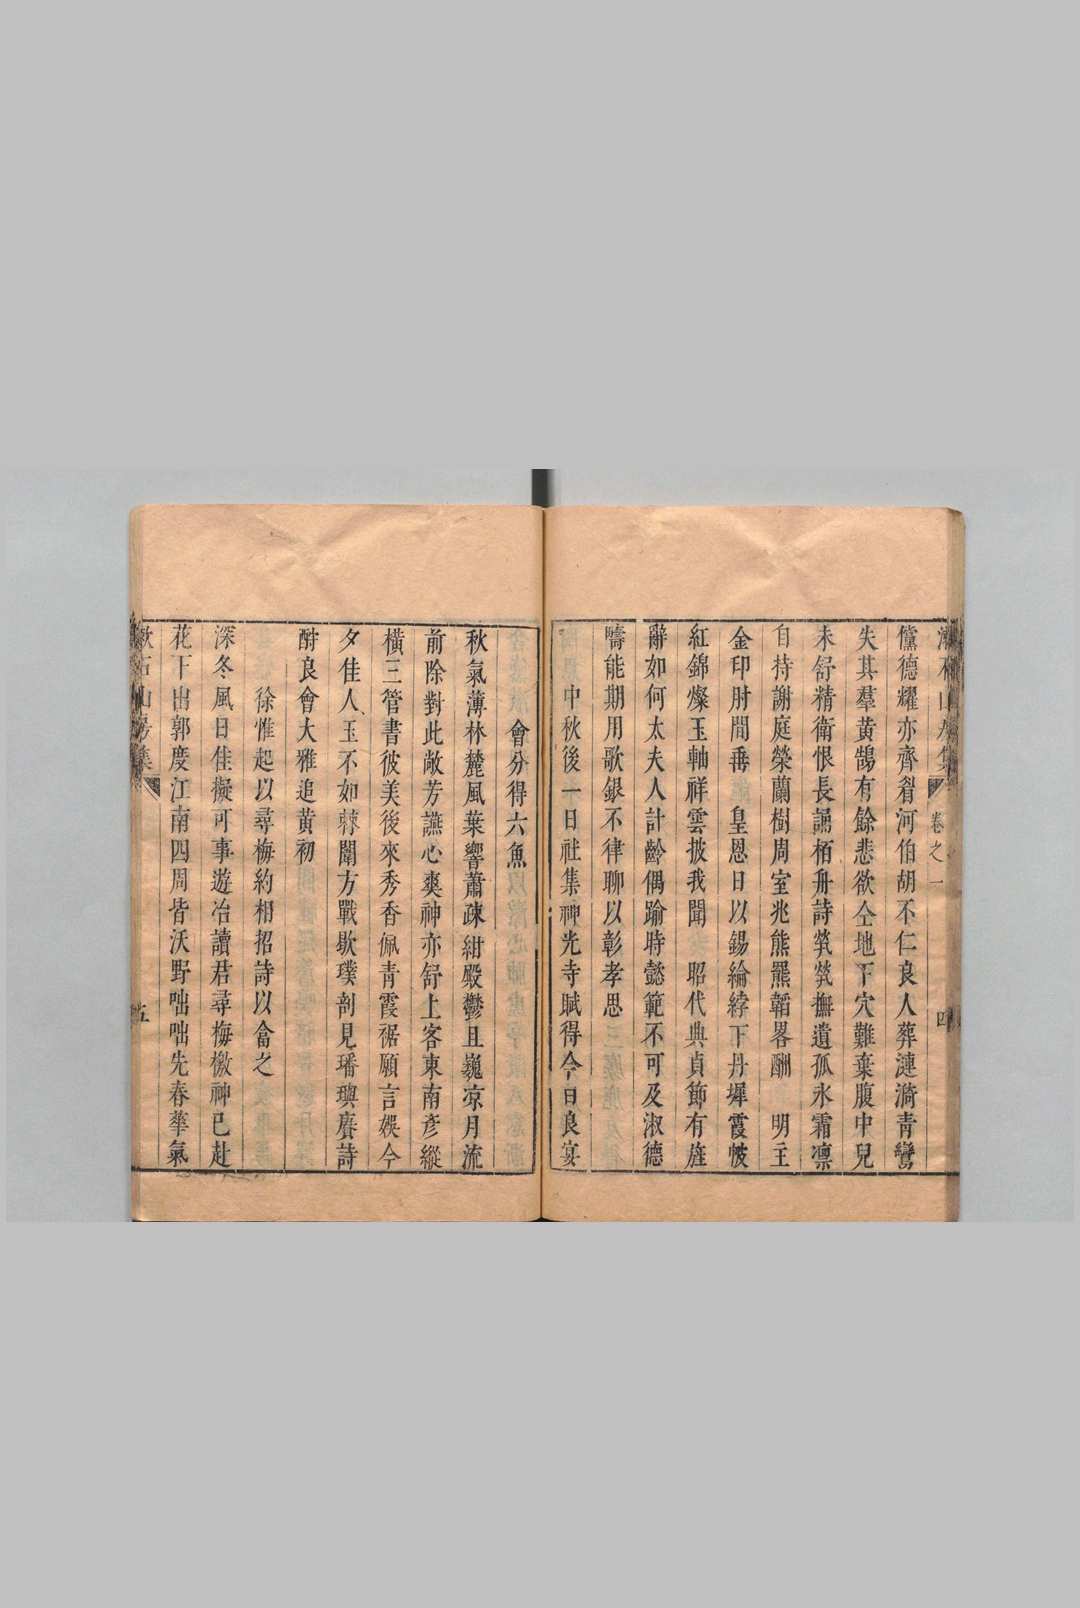 卷之一
四
儻德耀亦齊眉河伯胡不仁良人葬漣漪青鸞
失其羣黄鵠有餘悲欲仝地下穴難棄腹中兒
未舒精衛恨長誦栢舟詩煢煢撫遺孤氷霜凛
自持謝庭榮蘭樹周室兆熊羆韜畧酬 明主
金印肘間垂 皇恩日以錫綸綍下丹墀霞帔
紅錦燦玉軸祥雲披我聞 昭代典貞節有旌
辭如何太夫人計齡偶踰時懿範不可及淑德
疇能期用歌銀不律聊以彰孝思
中秋後一日社集神光寺賦得今日良宴
會分得六魚
秋氣薄林麓風葉響蕭疎紺殿鬱且巍凉月流
前除對此敞芳讌心爽神亦舒上客東南彦縱
横三管書彼美後來秀香佩青霞裾願言娱今
夕佳人玉不如棘闈方戰歇璞剖見璠璵賡詩
酧良會大雅追黄初
徐惟起以尋梅約相招詩以畣之
深冬風日佳擬可事遊冶讀君尋梅檄神已赴
花下出郭度江南四周皆沃野咄咄先春華氣
石山房集
五